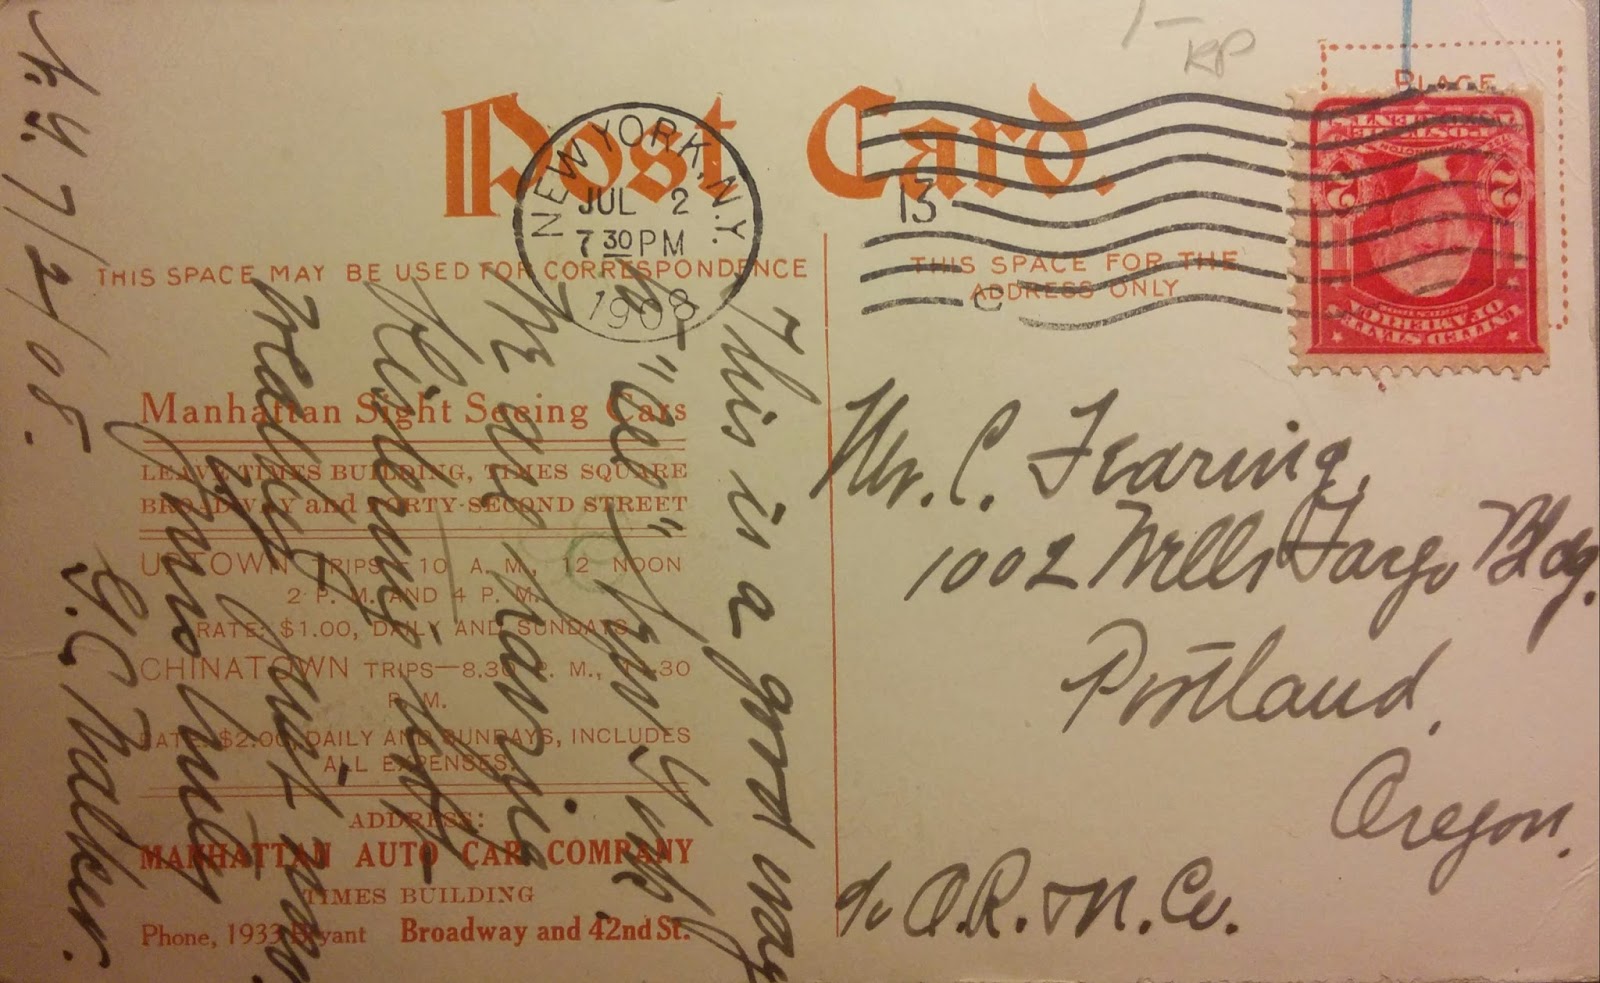 1-
RP
Post Card.
PLACE
NEW YORK, N.Y.
JUL 2
7 30 PM
1908
13
C
POSTAGE
2 2
UNITED STATES
OF AMERICA
THIS SPACE MAY BE USED FOR CORRESPONDENCE
THIS SPACE FOR THE
ADDRESS ONLY
Manhattan Sight Seeing Cars
LEAVE TIMES BUILDING, TIMES SQUARE
BROADWAY and FORTY-SECOND STREET
UPTOWN TRIPS—10 A. M., 12 NOON
2 P. M. AND 4 P. M.
RATE: $1.00, DAILY AND SUNDAYS
CHINATOWN TRIPS—8.30 P. M., 11.30
P. M.
RATE: $2.00, DAILY AND SUNDAYS, INCLUDES
ALL EXPENSES.
ADDRESS:
MANHATTAN AUTO CAR COMPANY
TIMES BUILDING
Phone, 1933 Bryant Broadway and 42nd St.
N.Y. 7/2/08.
This is a good way
to "see" New York.
We are having
just
Yours truly
G.C. Walker.
Mr. C. Fearing,
1002 Wells Fargo Bldg.
Portland,
Oregon.
c/o O.R. & N. Co.